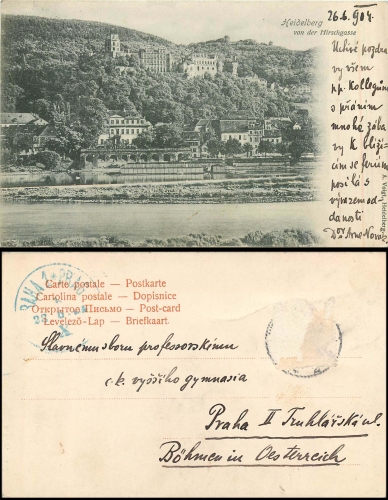 Heidelberg
von der Hirschgasse
26.6.904.
Uctivé pozdra
vy všem
pp. kollegům
s přáním
mnohé zába
vy k blíží-
cím se feriím
posílá s
výrazem od
danosti
Dr Arno
Carte postale — Postkarte
Cartolina postale — Dopisnice
Открытое Письмо — Post-card
Levelező-Lap — Briefkaart.
Slavnému sboru professorskému
c.k. vyššího gymnasia
Praha II Truhlářská ul.
Böhmen in Oesterreich